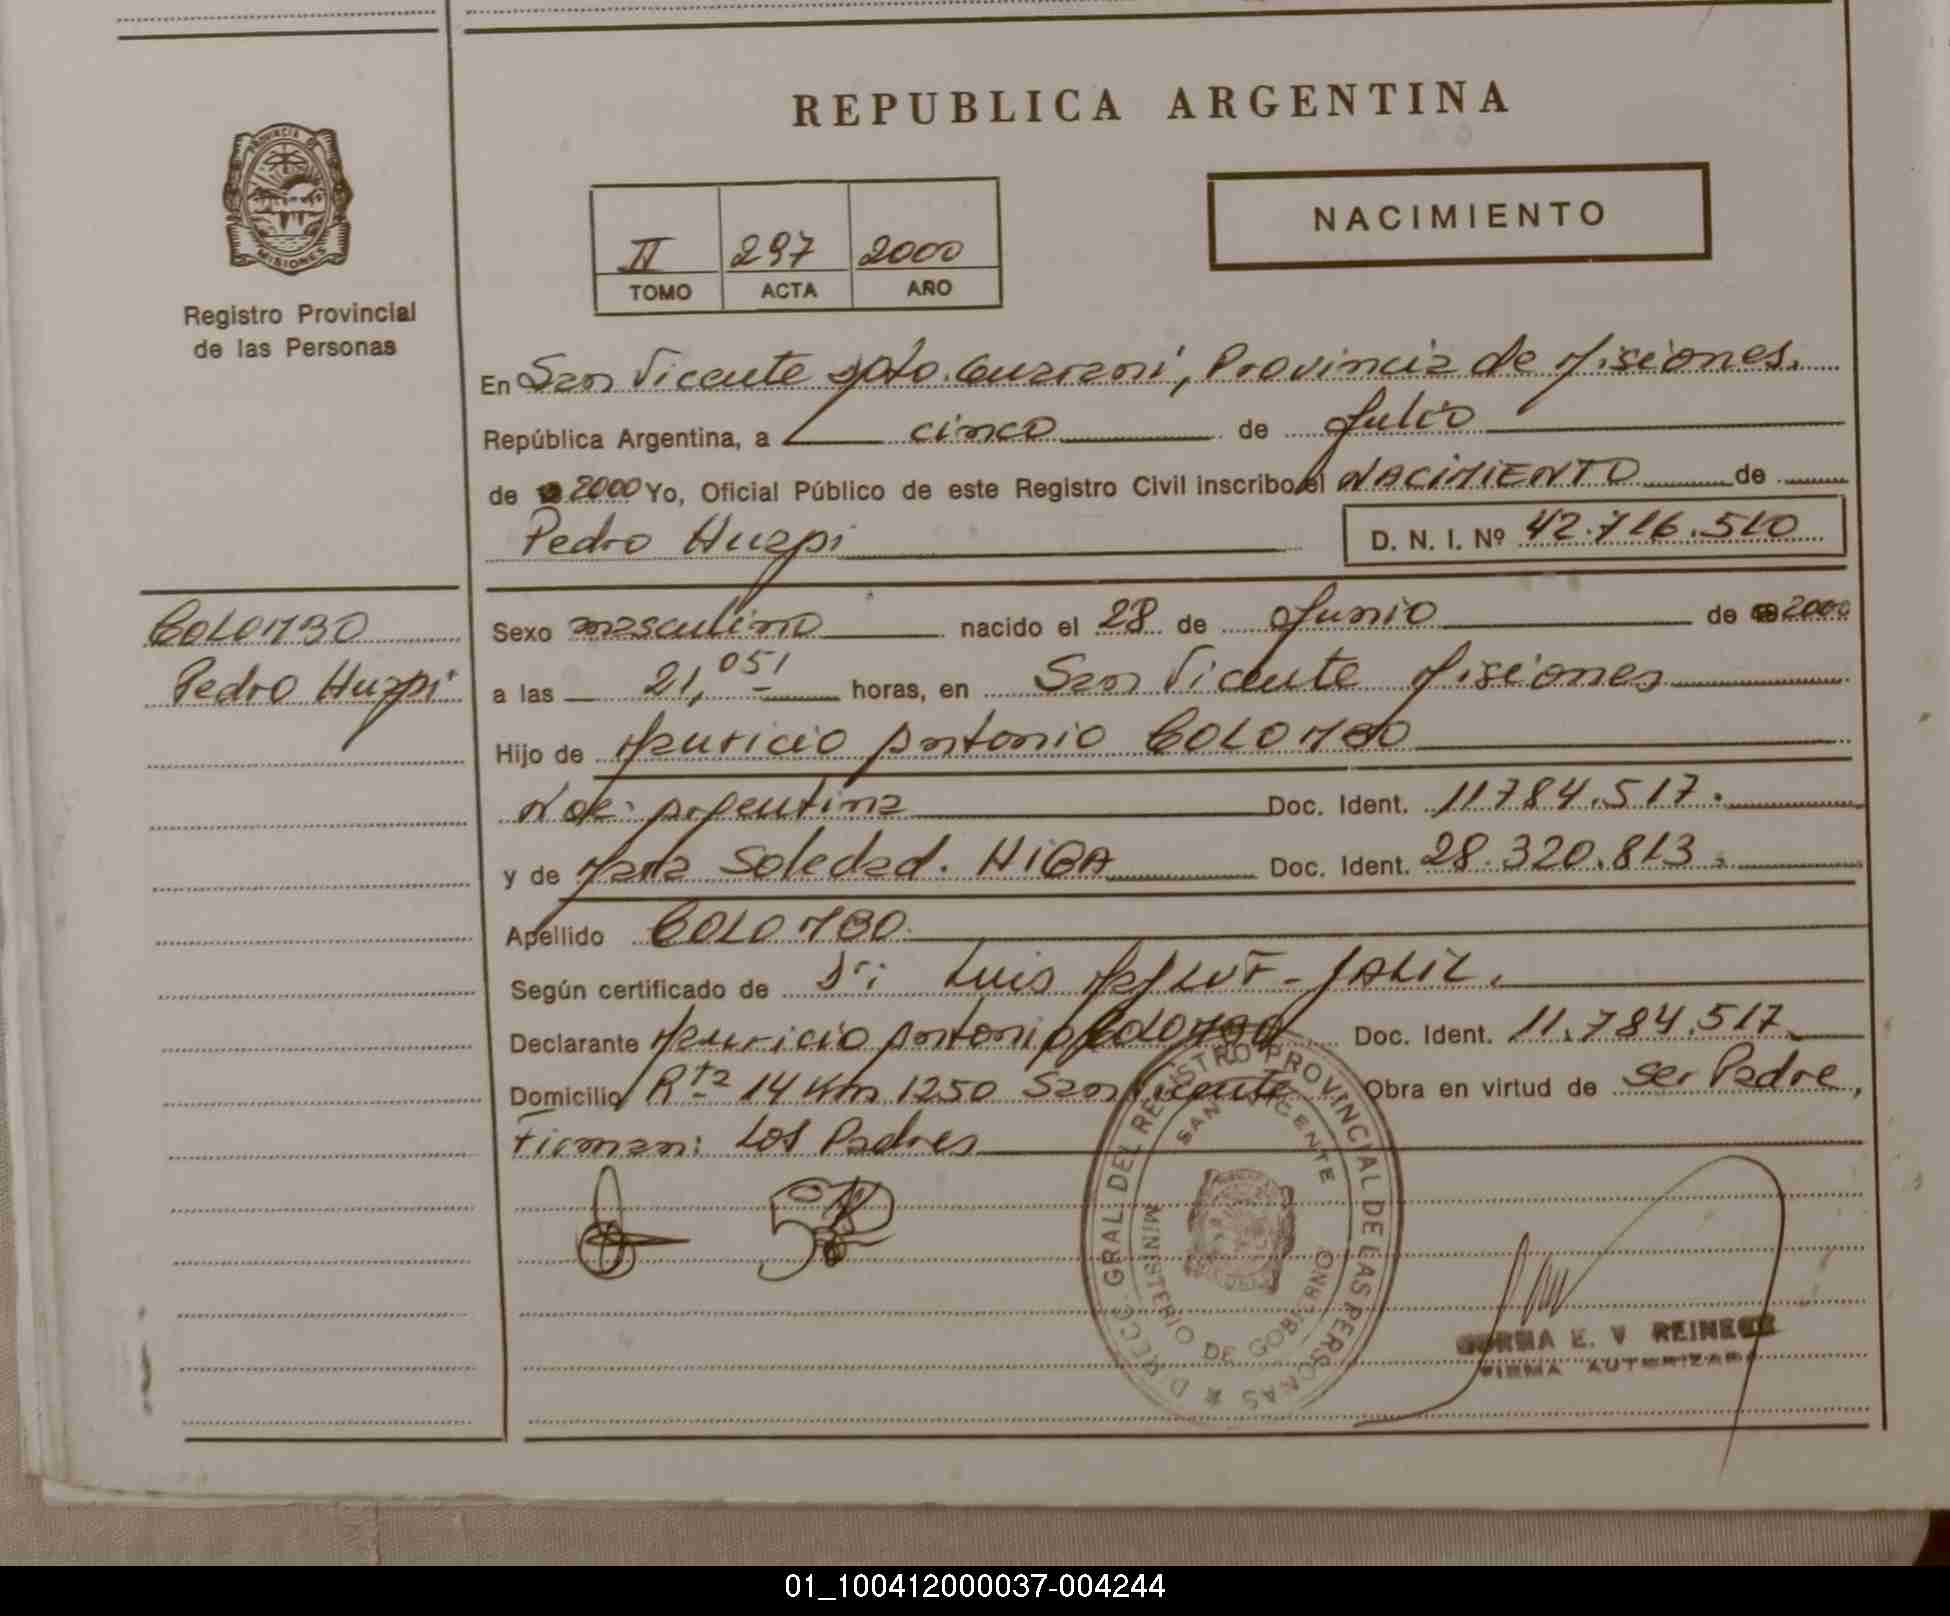 REPUBLICA ARGENTINA
PROVINCIA DE
MISIONES
Registro Provincial
de las Personas
NACIMIENTO
II 297 2000
TOMO ACTA AÑO
En San Vicente Dpto. Guarani, Provincia de Misiones.
República Argentina, a cinco de Julio
de 2000 Yo, Oficial Público de este Registro Civil inscribo el NACIMIENTO de
Pedro Huapi D. N. I. Nº 42.716.510
COLOMBO
Pedro Huapi
Sexo masculino nacido el 28 de Junio de 2000
a las 21,05' horas, en San Vicente Misiones
Hijo de Mauricio Antonio COLOMBO
Nac: Argentina Doc. Ident. 11784.517.
y de Maria Soledad. HIGA Doc. Ident. 28.320.813.
Apellido COLOMBO.
Según certificado de Dr: Luis JALIL.
Declarante Mauricio Antonio Colombo Doc. Ident. 11.784.517
Domicilio Rta 14 Km 1250 San Vicente Obra en virtud de ser Padre,
Firman: Los Padres
DIRECC. GRAL DEL REGISTRO PROVINCIAL DE LAS PERSONAS
SAN VICENTE
MINISTERIO DE GOBIERNO
E. V REINECK
FIRMA AUTORIZADA
01_100412000037-004244